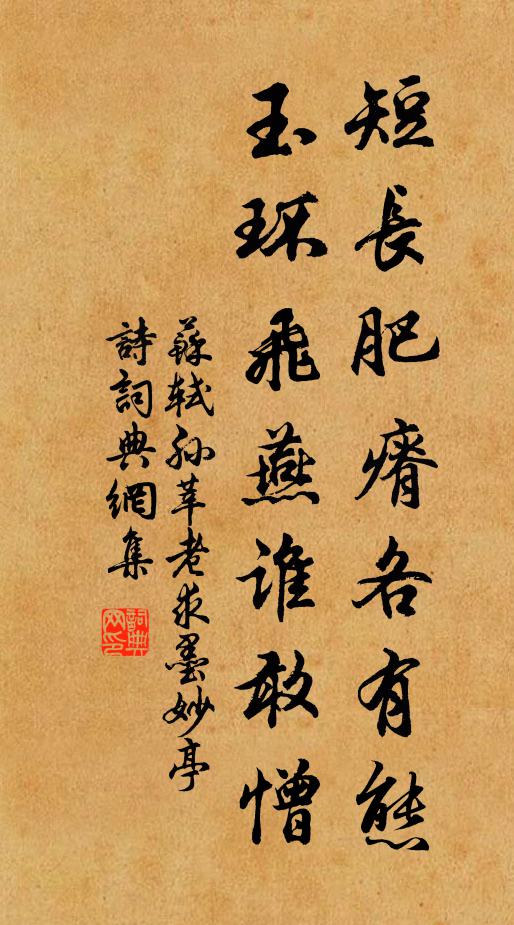 短長肥瘠各有態
玉环飛燕誰敢憎
蘇軾孫莘老求墨妙亭
詩詞典網集
詞典
网印